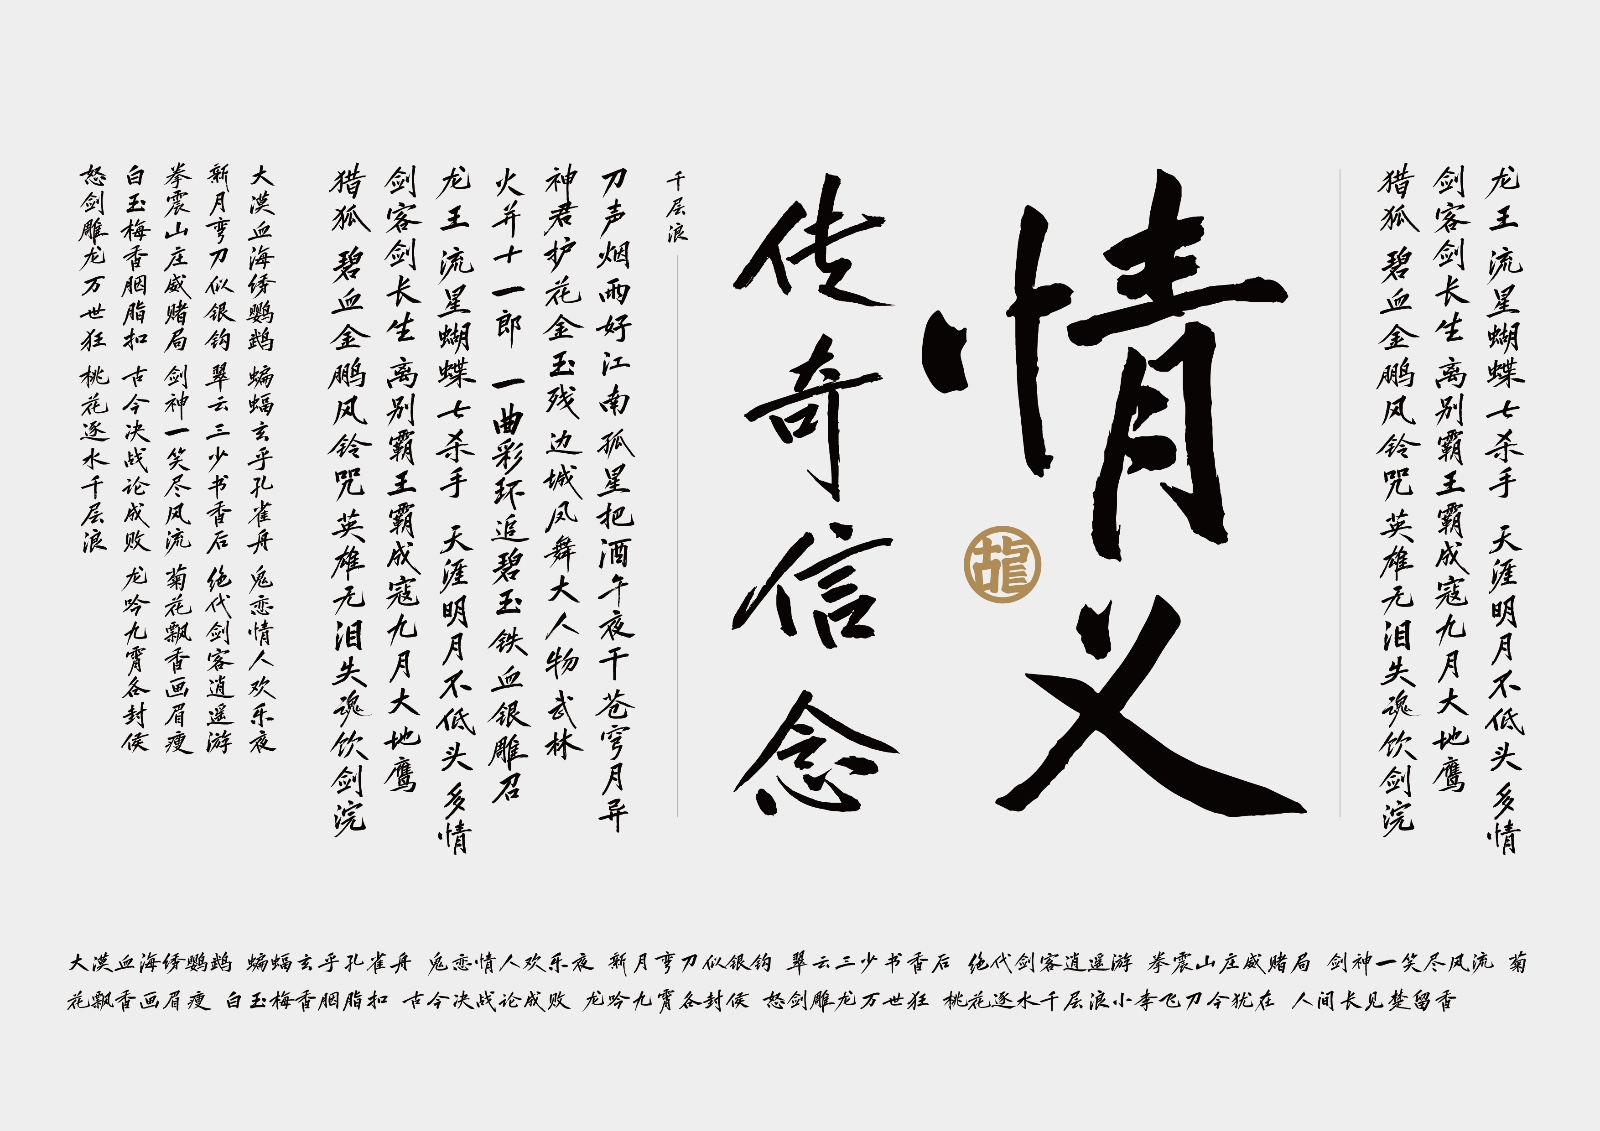 龙王 流星蝴蝶七杀手 天涯明月不低头 多情
剑客剑长生 离别霸王霸成寇 九月大地鹰
猎狐 碧血金鹏风铃咒 英雄无泪失魂饮剑浣
情义
传奇信念
千层浪
刀声烟雨好江南 孤星把酒午夜干 苍穹月异
神君护花金玉残 边城凤舞大人物 武林
火并十一郎 一曲彩环追碧玉 铁血银雕召
龙王 流星蝴蝶七杀手 天涯明月不低头 多情
剑客剑长生 离别霸王霸成寇 九月大地鹰
猎狐 碧血金鹏风铃咒 英雄无泪失魂饮剑浣
大漠血海绣鹦鹉 蝙蝠玄乎孔雀舟 鬼恋情人欢乐夜
新月弯刀似银钩 翠云三少书香后 绝代剑客逍遥游
拳震山庄威赌局 剑神一笑尽风流 菊花飘香画眉瘦
白玉梅香胭脂扣 古今决战论成败 龙吟九霄各封侯
怒剑雕龙万世狂 桃花逐水千层浪
大漠血海绣鹦鹉 蝙蝠玄乎孔雀舟 鬼恋情人欢乐夜 新月弯刀似银钩 翠云三少书香后 绝代剑客逍遥游 拳震山庄威赌局 剑神一笑尽风流 菊
花飘香画眉瘦 白玉梅香胭脂扣 古今决战论成败 龙吟九霄各封侯 怒剑雕龙万世狂 桃花逐水千层浪小李飞刀今犹在 人间长见楚留香